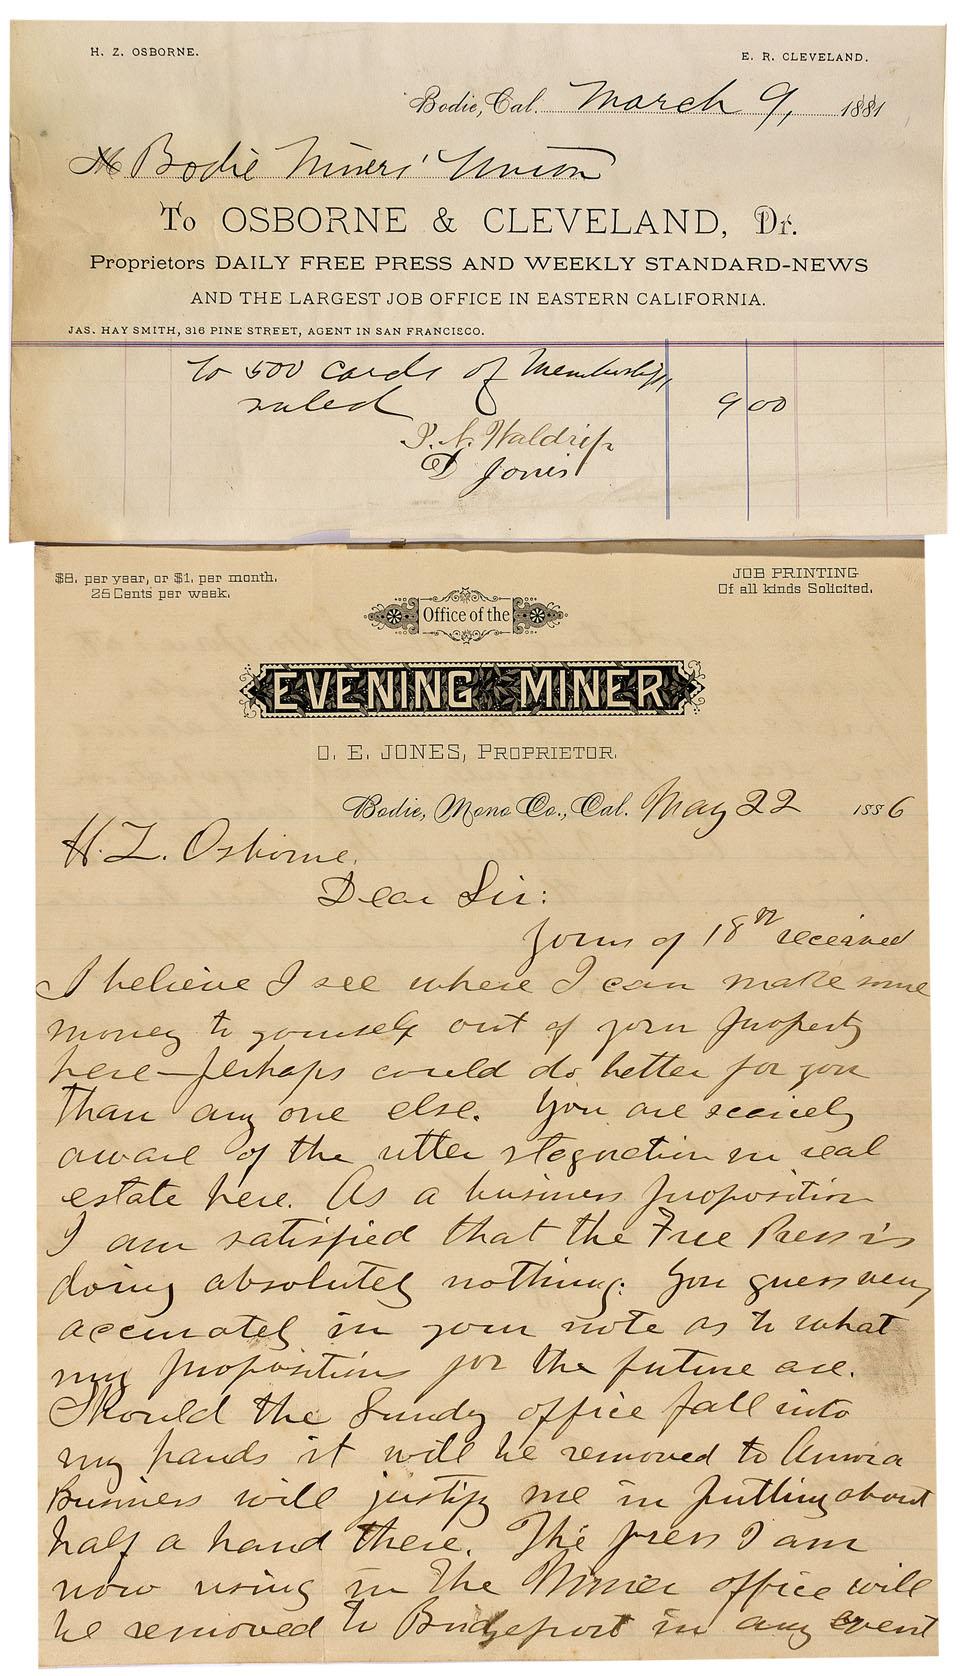 H. Z. OSBORNE.
E. R. CLEVELAND.
Bodie, Cal. March 9, 1881
M Bodie Miners' Union
To OSBORNE & CLEVELAND, Dr.
Proprietors DAILY FREE PRESS AND WEEKLY STANDARD-NEWS
AND THE LARGEST JOB OFFICE IN EASTERN CALIFORNIA.
JAS. HAY SMITH, 316 PINE STREET, AGENT IN SAN FRANCISCO.
To 500 cards of Membership
ruled 9 00
Waldrip
D Jones
$8. per year, or $1. per month.
25 Cents per week.
JOB PRINTING
Of all kinds Solicited.
Office of the
EVENING MINER
O. E. JONES, PROPRIETOR.
Bodie, Mono Co., Cal. May 22 1886
H. Z. Osborne.
Dear Sir:
Yours of 18th received
I believe I see where I can make some
money to yourself out of your property
here—perhaps could do better for you
than any one else. You are
aware of the utter stagnation in real
estate here. As a business proposition
I am satisfied that the Free Press is
doing absolutely nothing. You guess very
accurately in your note as to what
my propositions for the future are.
Should the Sundy office fall into
my hands it will be removed to Aurora
Business will justify me in putting about
half a hand there. The press I am
now using in the Miner office will
be removed to Bridgeport in any event